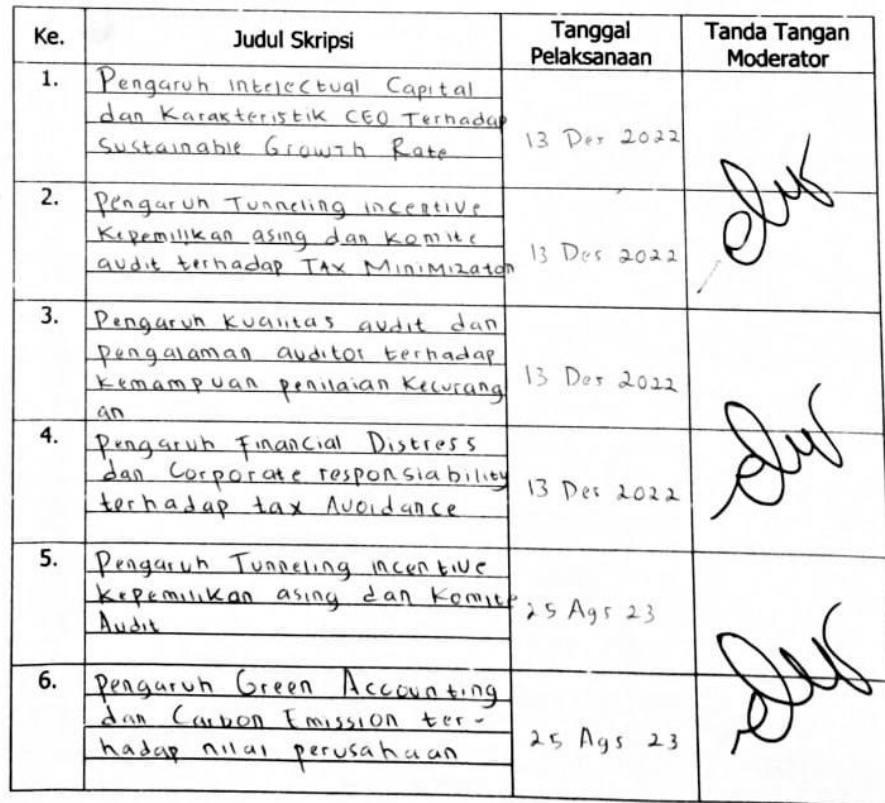 Ke.
Judul Skripsi
Tanggal
Pelaksanaan
Tanda Tangan
Moderator
1.
Pengaruh intelectual Capital
dan Karakteristik CEO Terhadap
Sustainable Growth Rate
13 Des 2022
2.
Pengaruh Tunneling incentive
Kepemilikan asing dan komite
audit terhadap TAX Minimizaton
13 Des 2022
3.
Pengaruh kualitas audit dan
pengalaman auditor terhadap
kemampuan penilaian kecurang
an
13 Des 2022
4.
Pengaruh Financial Distress
dan Corporate responsiability
terhadap tax Avoidance
13 Des 2022
5.
Pengaruh Tunneling incentive
kepemilikan asing dan Komite
Audit
25 Ags 23
6.
Pengaruh Green Accounting
dan Carbon Emission ter-
hadap nilai perusahaan
25 Ags 23